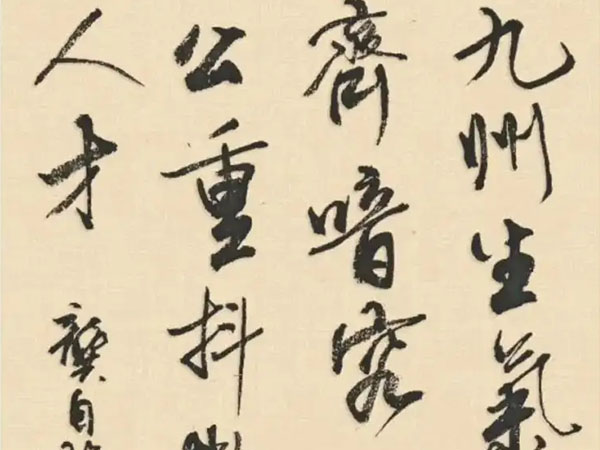 九州生氣
齊喑究
公重抖
人才
龔自